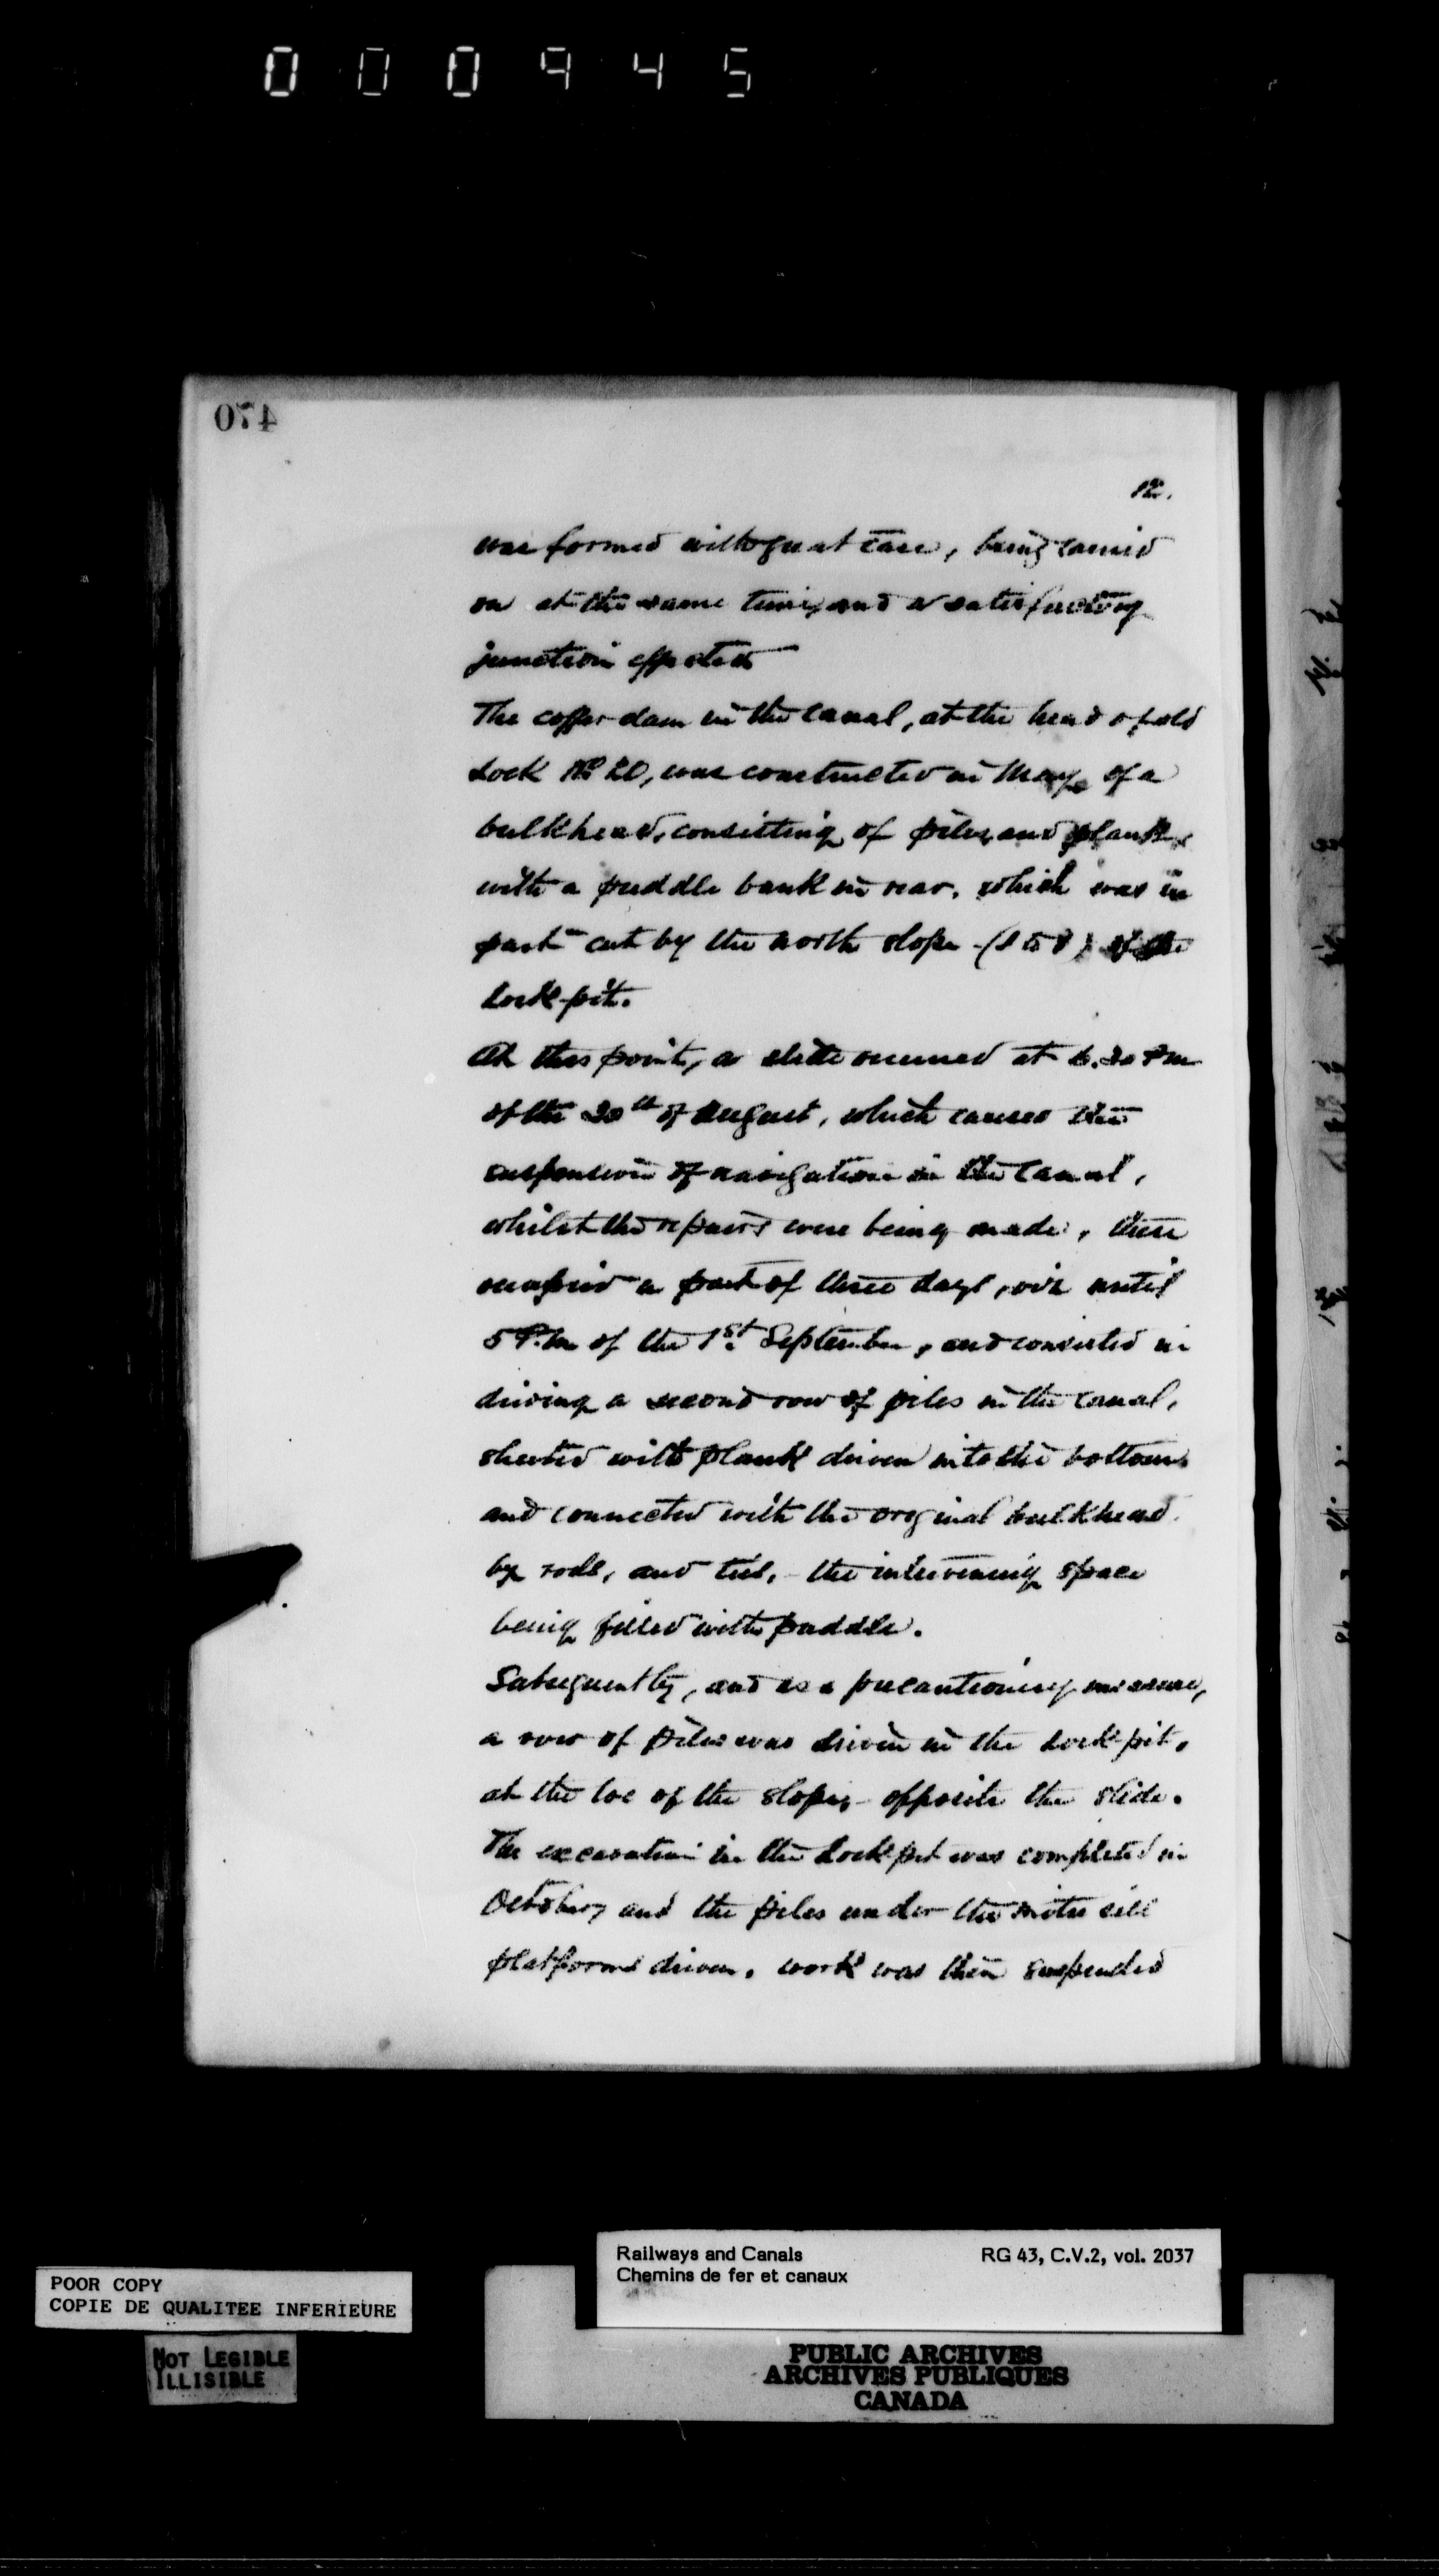 000945
470
12.
was formed with great care, being carried
on at the same time, and a satisfactory
junction effected
The coffer-dam in the canal, at the head of old
Lock No 20, was constructed in May, of a
bulkhead, consisting of piles, and plank,
with a puddle bank in rear, which was in
part cut by the north slope (1 to 1) of the
Lock-pit.
At this point, a slide occurred at 6.30 P.m
of the 30th of August, which caused the
suspension of navigation in the Canal,
whilst the repairs were being made, these
occupied a part of three days, viz until
5 P.m of the 1st September, and consisted in
driving a second row of piles in the canal,
sheeted with plank driven into the bottom,
and connected with the original bulkhead
by rods, and ties, - the intervening space
being filled with puddle.
Subsequently, and as a precautionary measure,
a row of piles was driven in the Lock pit,
at the toe of the slope, opposite the slide.
The excavation in the Lock pit was completed in
October, and the piles under the mitre sill
platforms driven. work was then suspended
Railways and Canals
Chemins de fer et canaux
RG 43, C.V.2, vol. 2037
POOR COPY
COPIE DE QUALITEE INFERIEURE
NOT LEGIBLE
ILLISIBLE
PUBLIC ARCHIVES
ARCHIVES PUBLIQUES
CANADA